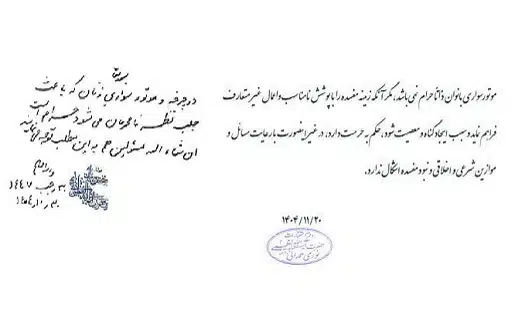 موتورسواری بانوان ذاتاً حرام نمی باشد، مگر آنکه زمینه مفسده را با پوشش نامناسب و اعمال غیر متعارف
فراهم نماید و سبب ایجاد گناه و معصیت شود، حکم به حرمت دارد، در غیر اینصورت با رعایت مسائل و
موازین شرعی و اخلاقی و نبود مفسده اشکال ندارد.
۱۴۰۴/۱۱/۲۰
دوچرخه و موتور سواری زنان که باعث
جلب نظر نامحرمان می شود حرام است
ان شاء الله مسئولین هم به این مطلب توجه
رجب ۱۴۴۷